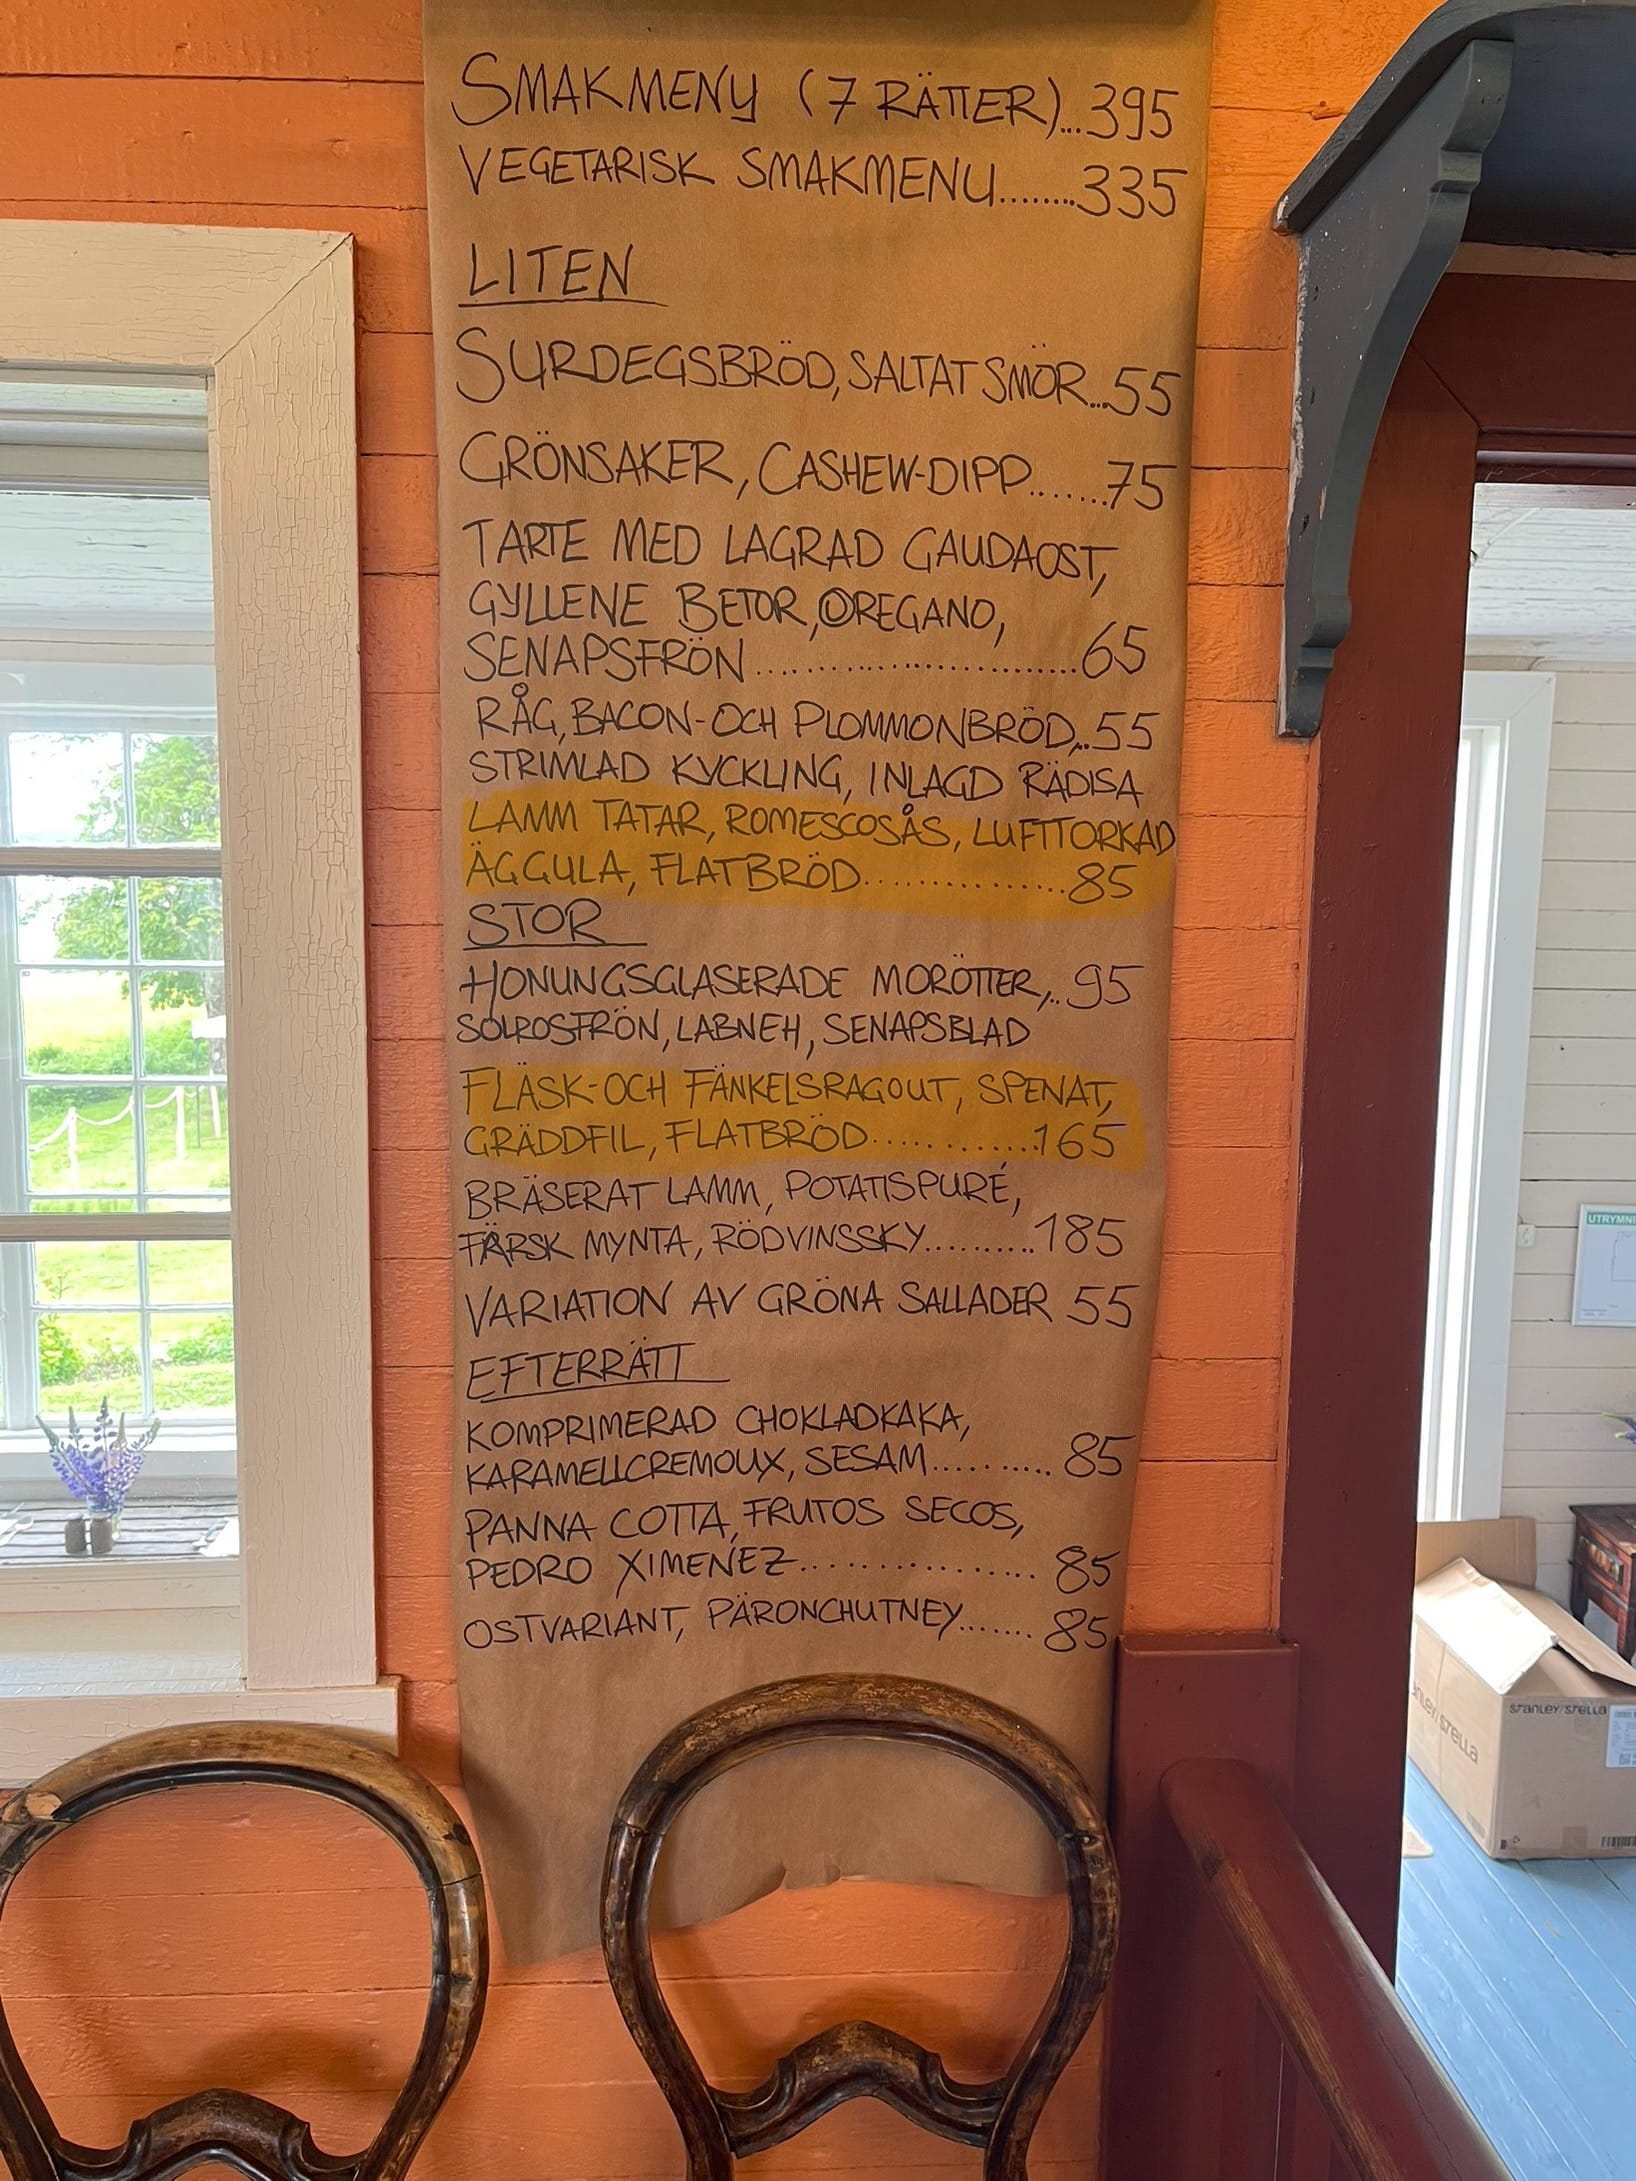 SMAKMENY (7 RÄTTER)...395
VEGETARISK SMAKMENU........335
LITEN
SURDEGSBRÖD, SALTAT SMÖR...55
GRÖNSAKER, CASHEW-DIPP.......75
TARTE MED LAGRAD GAUDAOST,
GYLLENE BETOR, OREGANO,
SENAPSFRÖN..............................65
RÅG, BACON- OCH PLOMMONBRÖD,..55
STRIMLAD KYCKLING, INLAGD RÄDISA
LAMM TATAR, ROMESCOSÅS, LUFTTORKAD
ÄGGULA, FLATBRÖD.................85
STOR
HONUNGSGLASERADE MORÖTTER,..95
SOLROSFRÖN, LABNEH, SENAPSBLAD
FLÄSK- OCH FÄNKELSRAGOUT, SPENAT,
GRÄDDFIL, FLATBRÖD............165
BRÄSERAT LAMM, POTATISPURÉ,
FÄRSK MYNTA, RÖDVINSSKY..........185
VARIATION AV GRÖNA SALLADER 55
EFTERRÄTT
KOMPRIMERAD CHOKLADKAKA,
KARAMELLCREMOUX, SESAM.......... 85
PANNA COTTA, FRUTOS SECOS,
PEDRO XIMENEZ............... 85
OSTVARIANT, PÄRONCHUTNEY....... 85
UTRYMNI
STANLEY/STELLA
STELLA